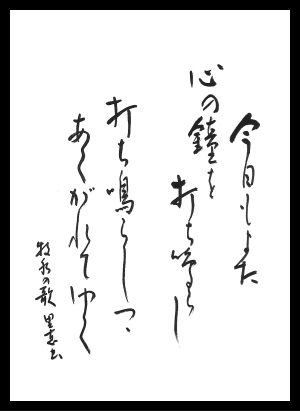 今日もまた
心の鐘を打ち鳴らし
打ち鳴らしつゝ
あくがれてゆく
牧水の歌